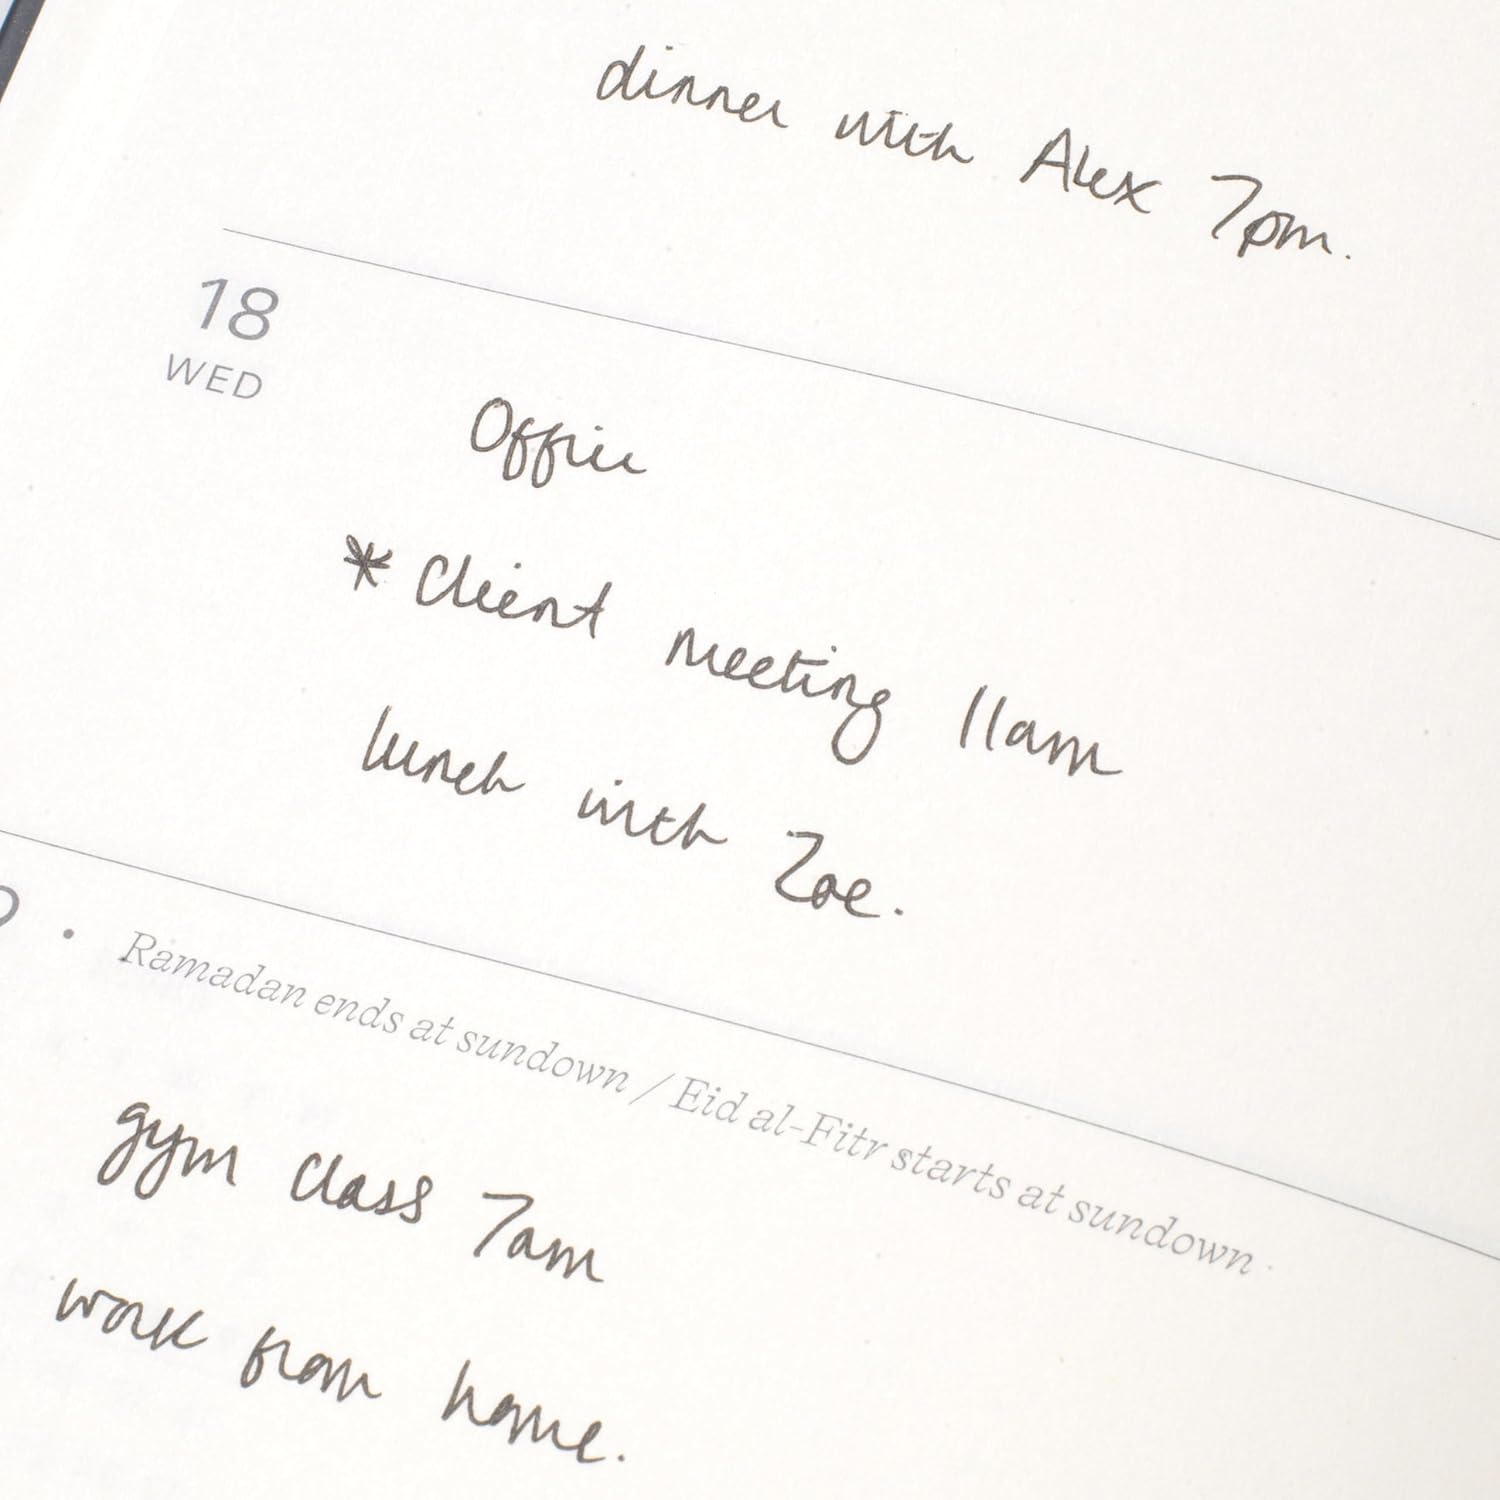 dinner with Alex 7pm.
18
WED
Office
* Client meeting 11am
lunch with Zoe.
• Ramadan ends at sundown / Eid al-Fitr starts at sundown
gym class 7am
work from home.